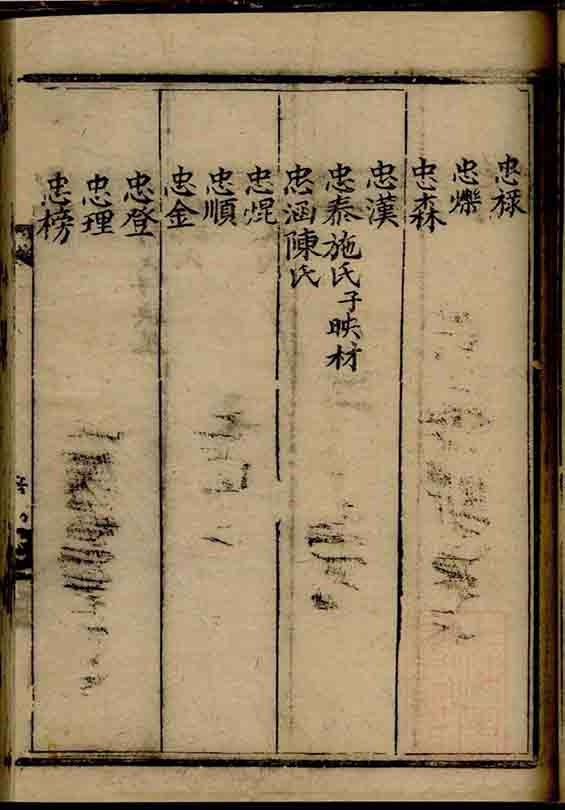 忠祿
忠爍
忠森
忠漢
忠泰施氏子映材
忠涵陳氏
忠焜
忠順
忠金
忠登
忠理
忠榜